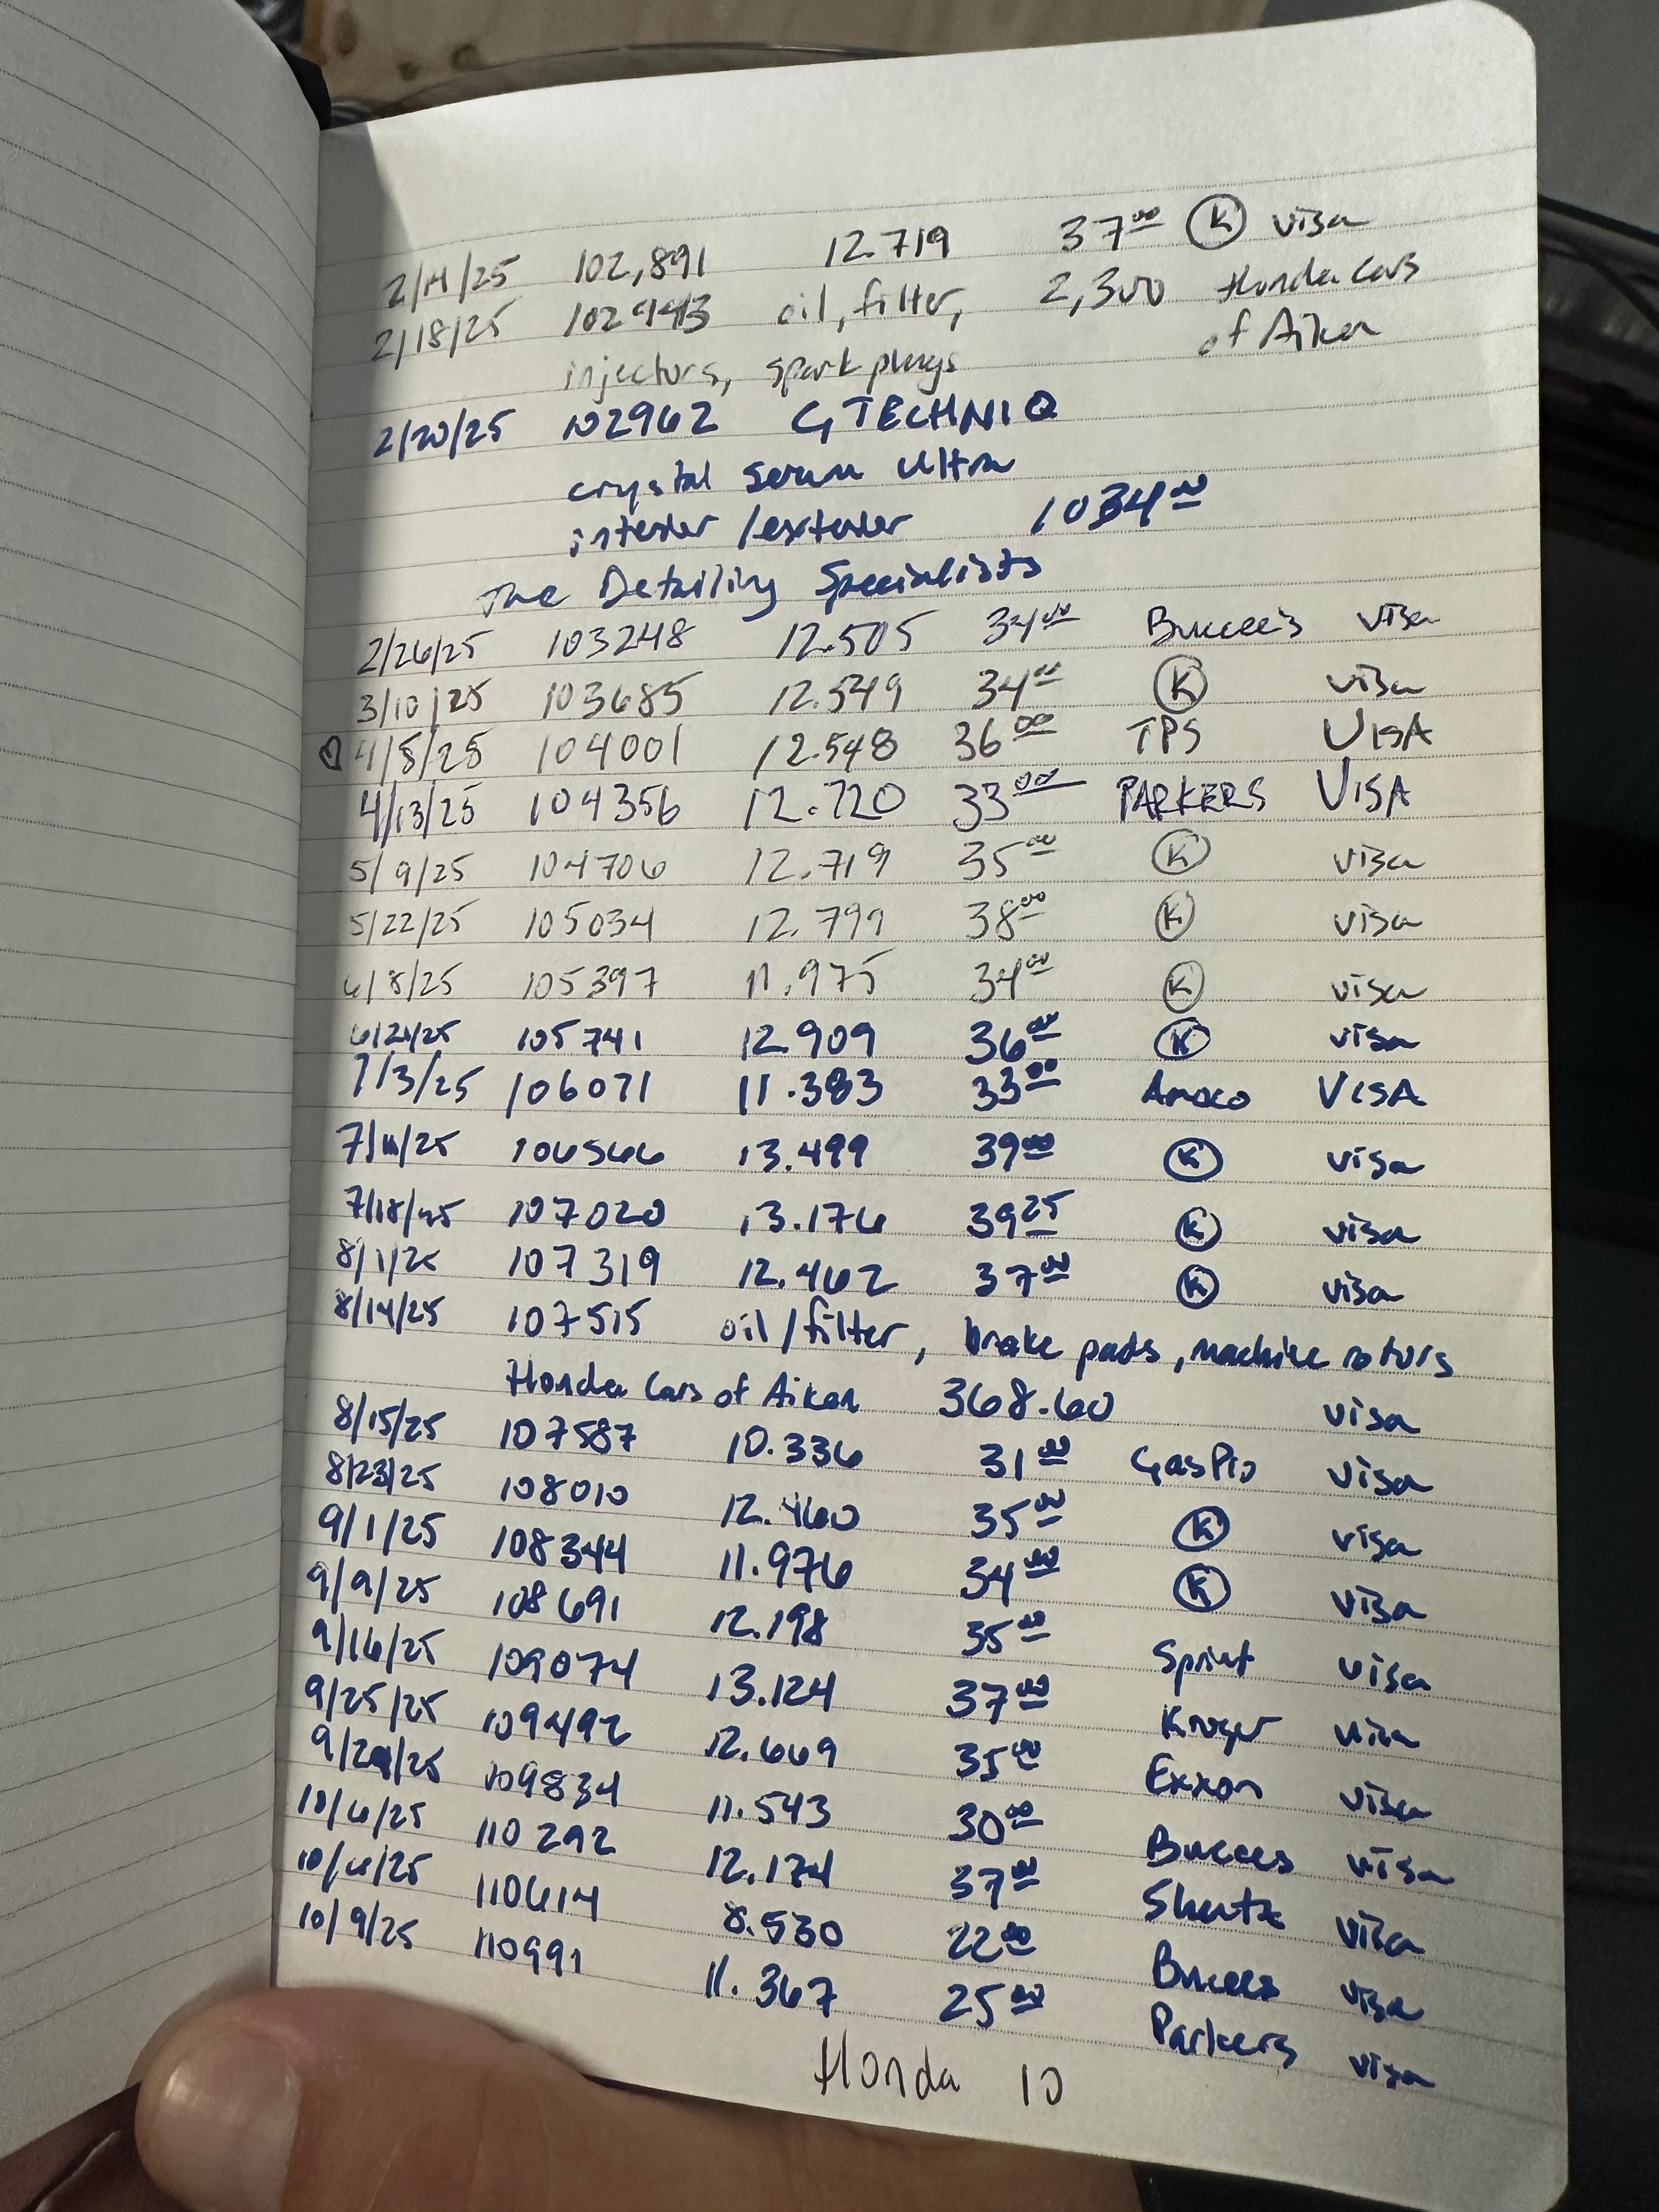 2/14/25 102,891 12.719 37.00 Ⓚ visa
2/18/25 102943 oil, filter, 2,300 Honda Cars
injectors, spark plugs of Aiken
2/20/25 102962 GTECHNIQ
crystal serum ultra
interior/exterior 1034.00
The Detailing Specialists
2/26/25 103248 12.505 34.00 Buccee's visa
3/10/25 103685 12.549 34.00 Ⓚ visa
4/8/25 104001 12.548 36.00 TPS VISA
4/13/25 104356 12.720 33.00 PARKERS VISA
5/9/25 104706 12.719 35.00 Ⓚ visa
5/22/25 105034 12.799 38.00 Ⓚ visa
6/8/25 105397 11.975 34.00 Ⓚ visa
6/21/25 105741 12.909 36.00 Ⓚ visa
7/3/25 106071 11.383 33.00 Amoco VISA
7/11/25 106566 13.499 39.00 Ⓚ visa
7/18/25 107020 13.176 39.25 Ⓚ visa
8/1/25 107319 12.462 37.00 Ⓚ visa
8/14/25 107515 oil/filter, brake pads, machine rotors
Honda Cars of Aiken 368.60 visa
8/15/25 107587 10.336 31.00 GasPro visa
8/23/25 108010 12.460 35.00 Ⓚ visa
9/1/25 108344 11.976 34.00 Ⓚ visa
9/9/25 108691 12.198 35.00 Sprint visa
9/16/25 109074 13.124 37.00 Kroger visa
9/25/25 109492 12.669 35.00 Exxon visa
9/29/25 109834 11.543 30.00 Buccees visa
10/6/25 110292 12.174 37.00 Sheetz visa
10/6/25 110614 8.530 22.00 Buccees visa
10/9/25 110991 11.367 25.00 Parkers visa
Honda 10